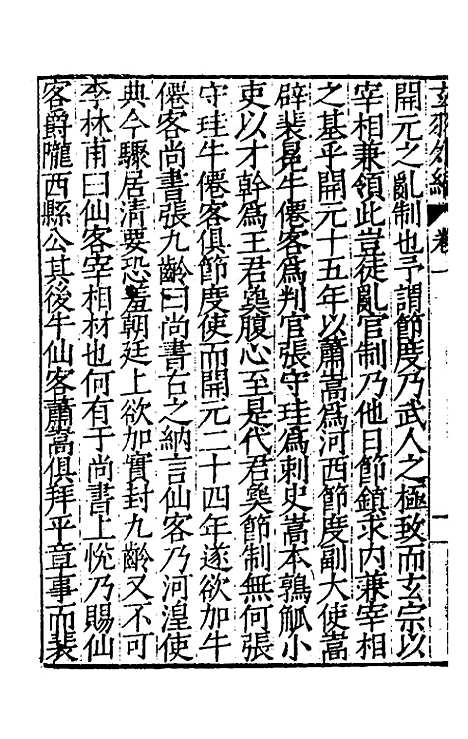 玄羽外編 卷一
開元之亂制也予謂節度乃武人之極致而玄宗以
宰相兼領此豈徒亂官制乃他日節鎮求内兼宰相
之基乎開元十五年以蕭嵩爲河西節度副大使嵩
辟裴昇牛僊客爲判官張守珪爲刺史嵩本鶉觚小
吏以才幹爲王君㚟腹心至是代君㚟節制無何張
守珪牛僊客俱節度使而開元二十四年遂欲加牛
僊客尚書張九齡曰尚書古之納言仙客乃河湟使
典今驟居清要恐羞朝廷上欲加實封九齡又不可
李林甫曰仙客宰相材也何有于尚書上悅乃賜仙
客爵隴西縣公其後牛仙客蕭嵩俱拜平章事而裴